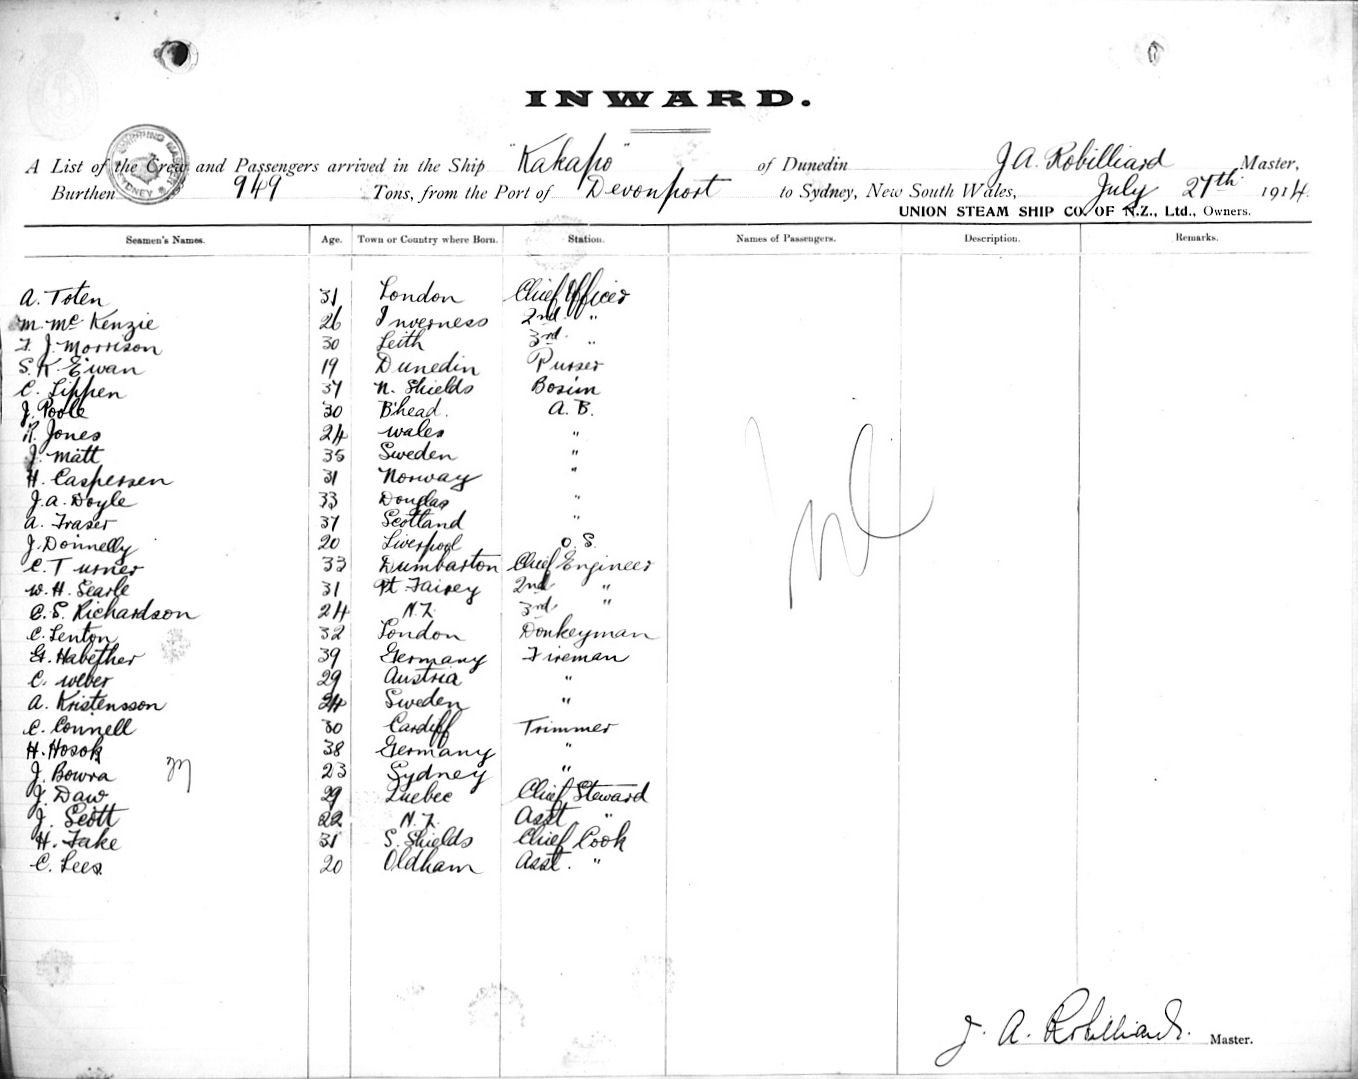 INWARD.
A List of the Crew and Passengers arrived in the Ship "Kakapo" of Dunedin J A. Robilliard Master,
Burthen 949 Tons, from the Port of Devonport to Sydney, New South Wales, July 27th 1914.
UNION STEAM SHIP CO. OF N.Z., Ltd., Owners.
Seamen's Names. Age. Town or Country where Born. Station. Names of Passengers. Description. Remarks.
A. Toten 31 London Chief Officer
M. McKenzie 26 Inverness 2nd "
F. J. Morrison 30 Leith 3rd "
S. K. Ewan 19 Dunedin Purser
C. Lippen 37 N. Shields Bosun
J. Poole 30 B'head. A. B.
R. Jones 24 Wales "
J. Matt 35 Sweden "
H. Caspersen 31 Norway "
J. A. Doyle 33 Douglas "
A. Fraser 37 Scotland "
J. Donnelly 20 Liverpool O. S.
C. Turner 33 Dumbarton Chief Engineer
W. H. Searle 31 Pt Fairey 2nd "
C. S. Richardson 24 N.Z. 3rd "
C. Lenton 32 London Donkeyman
G. Habether 39 Germany Fireman
C. Weber 29 Austria "
A. Kristensson 24 Sweden "
C. Connell 30 Cardiff Trimmer
H. Hosok 38 Germany "
J. Bowra 23 Sydney "
J. Daw 29 Quebec Chief Steward
J. Scott 22 N.Z. Asst "
H. Fake 31 S. Shields Chief Cook
C. Lees 20 Oldham Asst. "
J. A. Robilliard. Master.